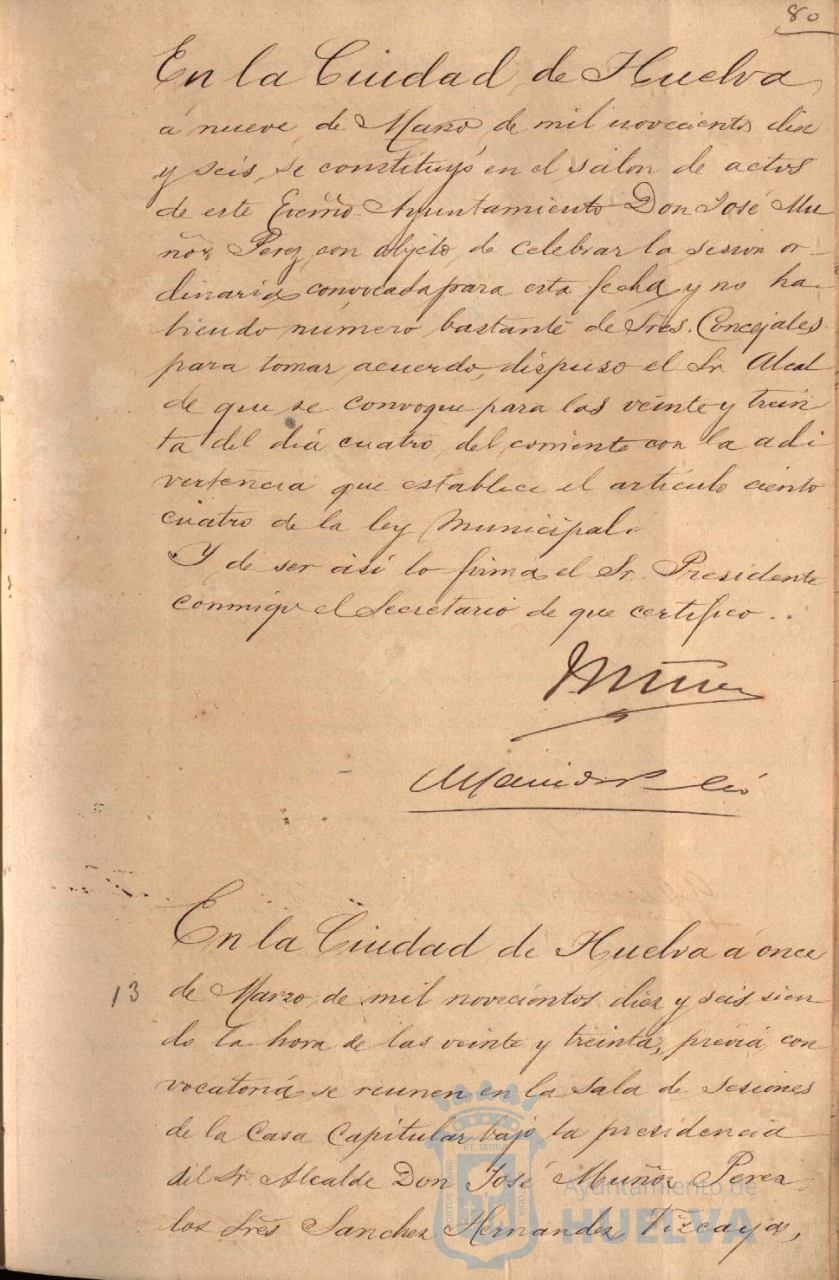 80
En la Ciudad de Huelva
á nueve de Marzo de mil novecientos diez
y seis, se constituyó en el salon de actos
de este Excmo Ayuntamiento Don José Mu
ñoz Perez con objeto de celebrar la sesion or-
dinaria convocada para esta fecha y no ha-
biendo número bastante de Sres. Concejales
para tomar acuerdo, dispuso el Sr. Alcal
de que se convoque para las veinte y trein
ta del dia cuatro del corriente con la adi
vertencia que establece el artículo ciento
cuatro de la ley Municipal.
Y de ser asi lo firma el Sr. Presidente
conmigo el Secretario de que certifico.
En la Ciudad de Huelva á once
13 de Marzo de mil novecientos diez y seis sien
do la hora de las veinte y treinta, previa con
vocatoria se reunen en la Sala de Sesiones
de la Casa Capitular bajo la presidencia
del Sr. Alcalde Don José Muñoz Perez
los Sres Sanchez Hernandez Vizcaya,
Ayuntamiento de
HUELVA